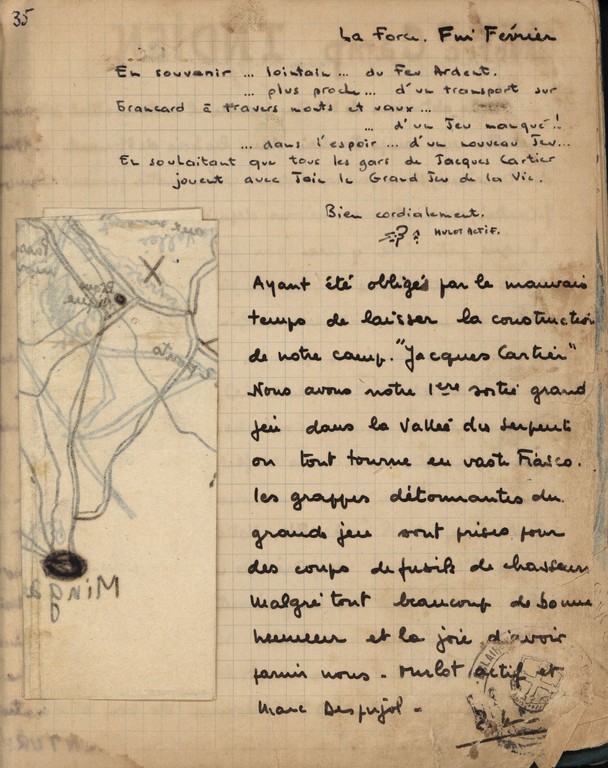 35
La Force. Fin Février
En souvenir ... lointain ... du Feu Ardent.
... plus proche ... d'un transport sur
brancard à travers monts et vaux ...
... d'un Jeu manqué !
... dans l'espoir ... d'un nouveau Jeu ...
En souhaitant que tous les gars de Jacques Cartier
jouent avec Joie le Grand Jeu de la Vie.
Bien cordialement.
MULOT ACTIF.
Ayant été obligés par le mauvais
temps de laisser la construction
de notre camp. "Jacques Cartier"
Nous avons notre 1ère sortie grand
jeu dans la Vallée des Serpents
ou tout tourne en vaste Fiasco.
les grappes détonnantes du
grand jeu sont prises pour
des coups de fusils de chasseurs
malgré tout beaucoup de bonne
humeur et la joie d'avoir
parmi nous - Mulot actif et
Marc Despujol -
Minga